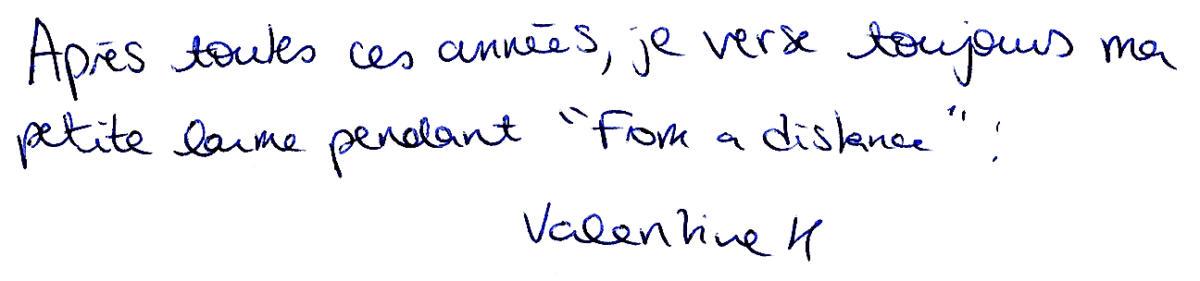 Après toutes ces années, je verse toujours ma
petite larme pendant "From a distance" !
Valentine H